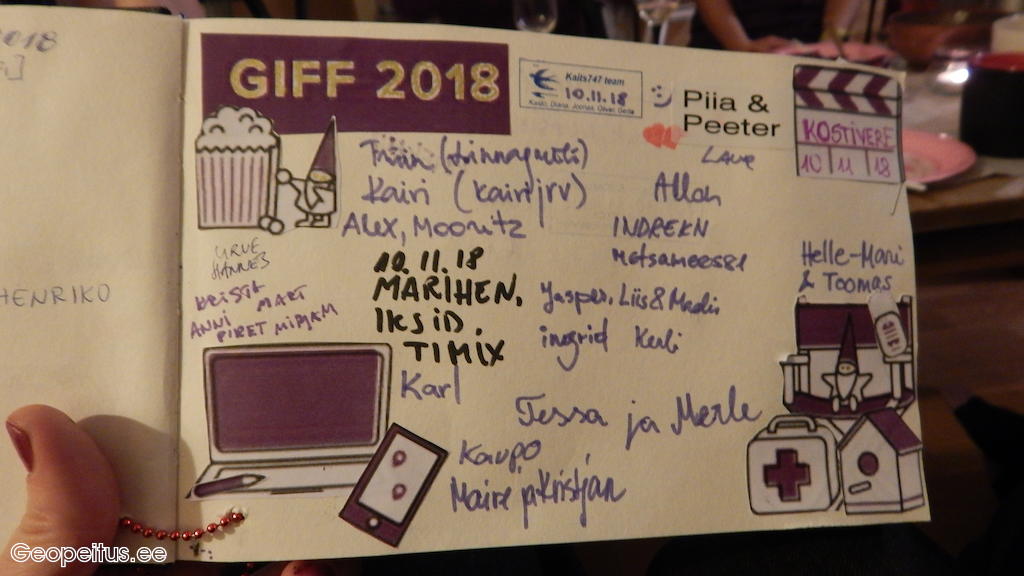 2018
]
HENRIKO
GIFF 2018
Kaits747 team
10.11.18
Kaido, Diana, Joonas, Oliver, Gerta
Piia &
Peeter
KOSTIVERE
10 11 18
Triin (linnaguti)
Kairi (kairijrv)
Alex, Mooritz
Laur
Allan
INDREKN
Metsamees81
Helle-Mari
& Toomas
URVE
HANNES
KRISTI
MART
ANNI
PIRET MIRJAM
10.11.18
MARIHEN,
IKSID,
TIMIX
Jasper, Liis & Madis
ingrid Kerli
Karl
Tessa ja Merle
Kaupo
Maire ja Kristjan
Geopeitus.ee